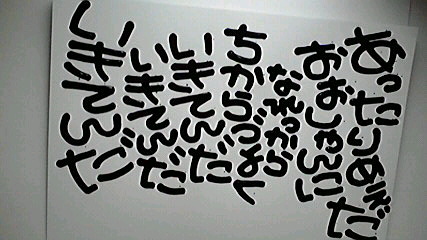 あったりめぇだ
おおしゃんに
なれっから
ちからづよく
いきてんだ
いきてんだ
いきてんだ